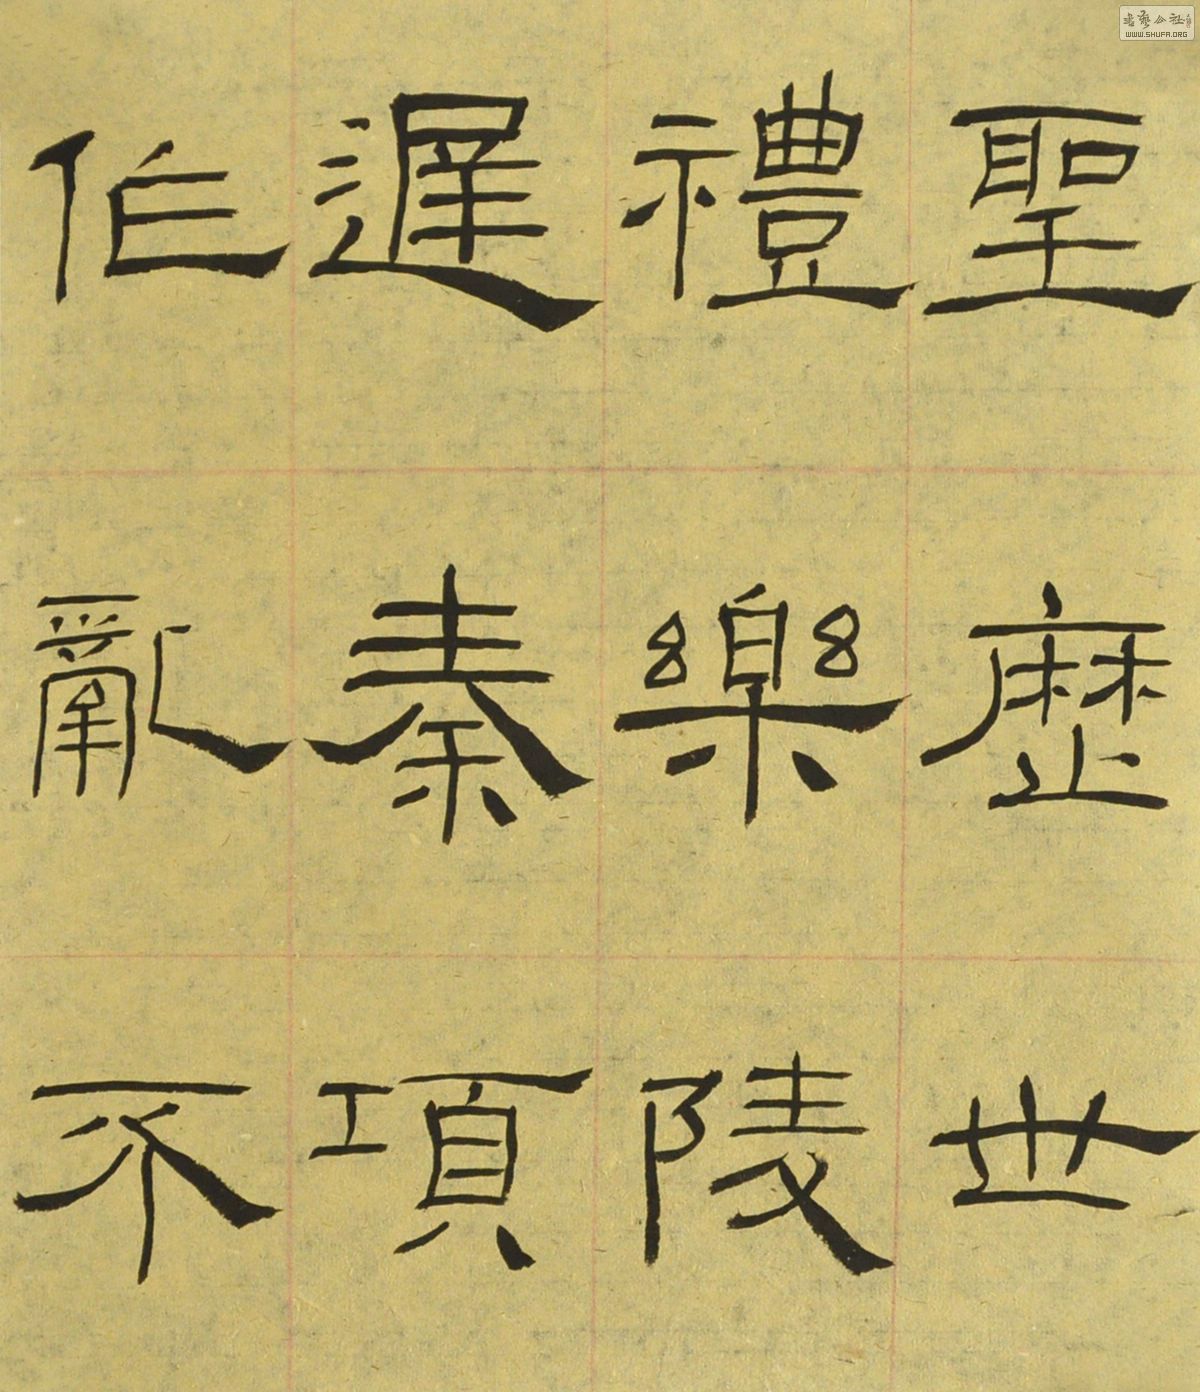 聖歷世
禮樂陵
遲秦項
作亂不
書藝公社
WWW.SHUFA.ORG